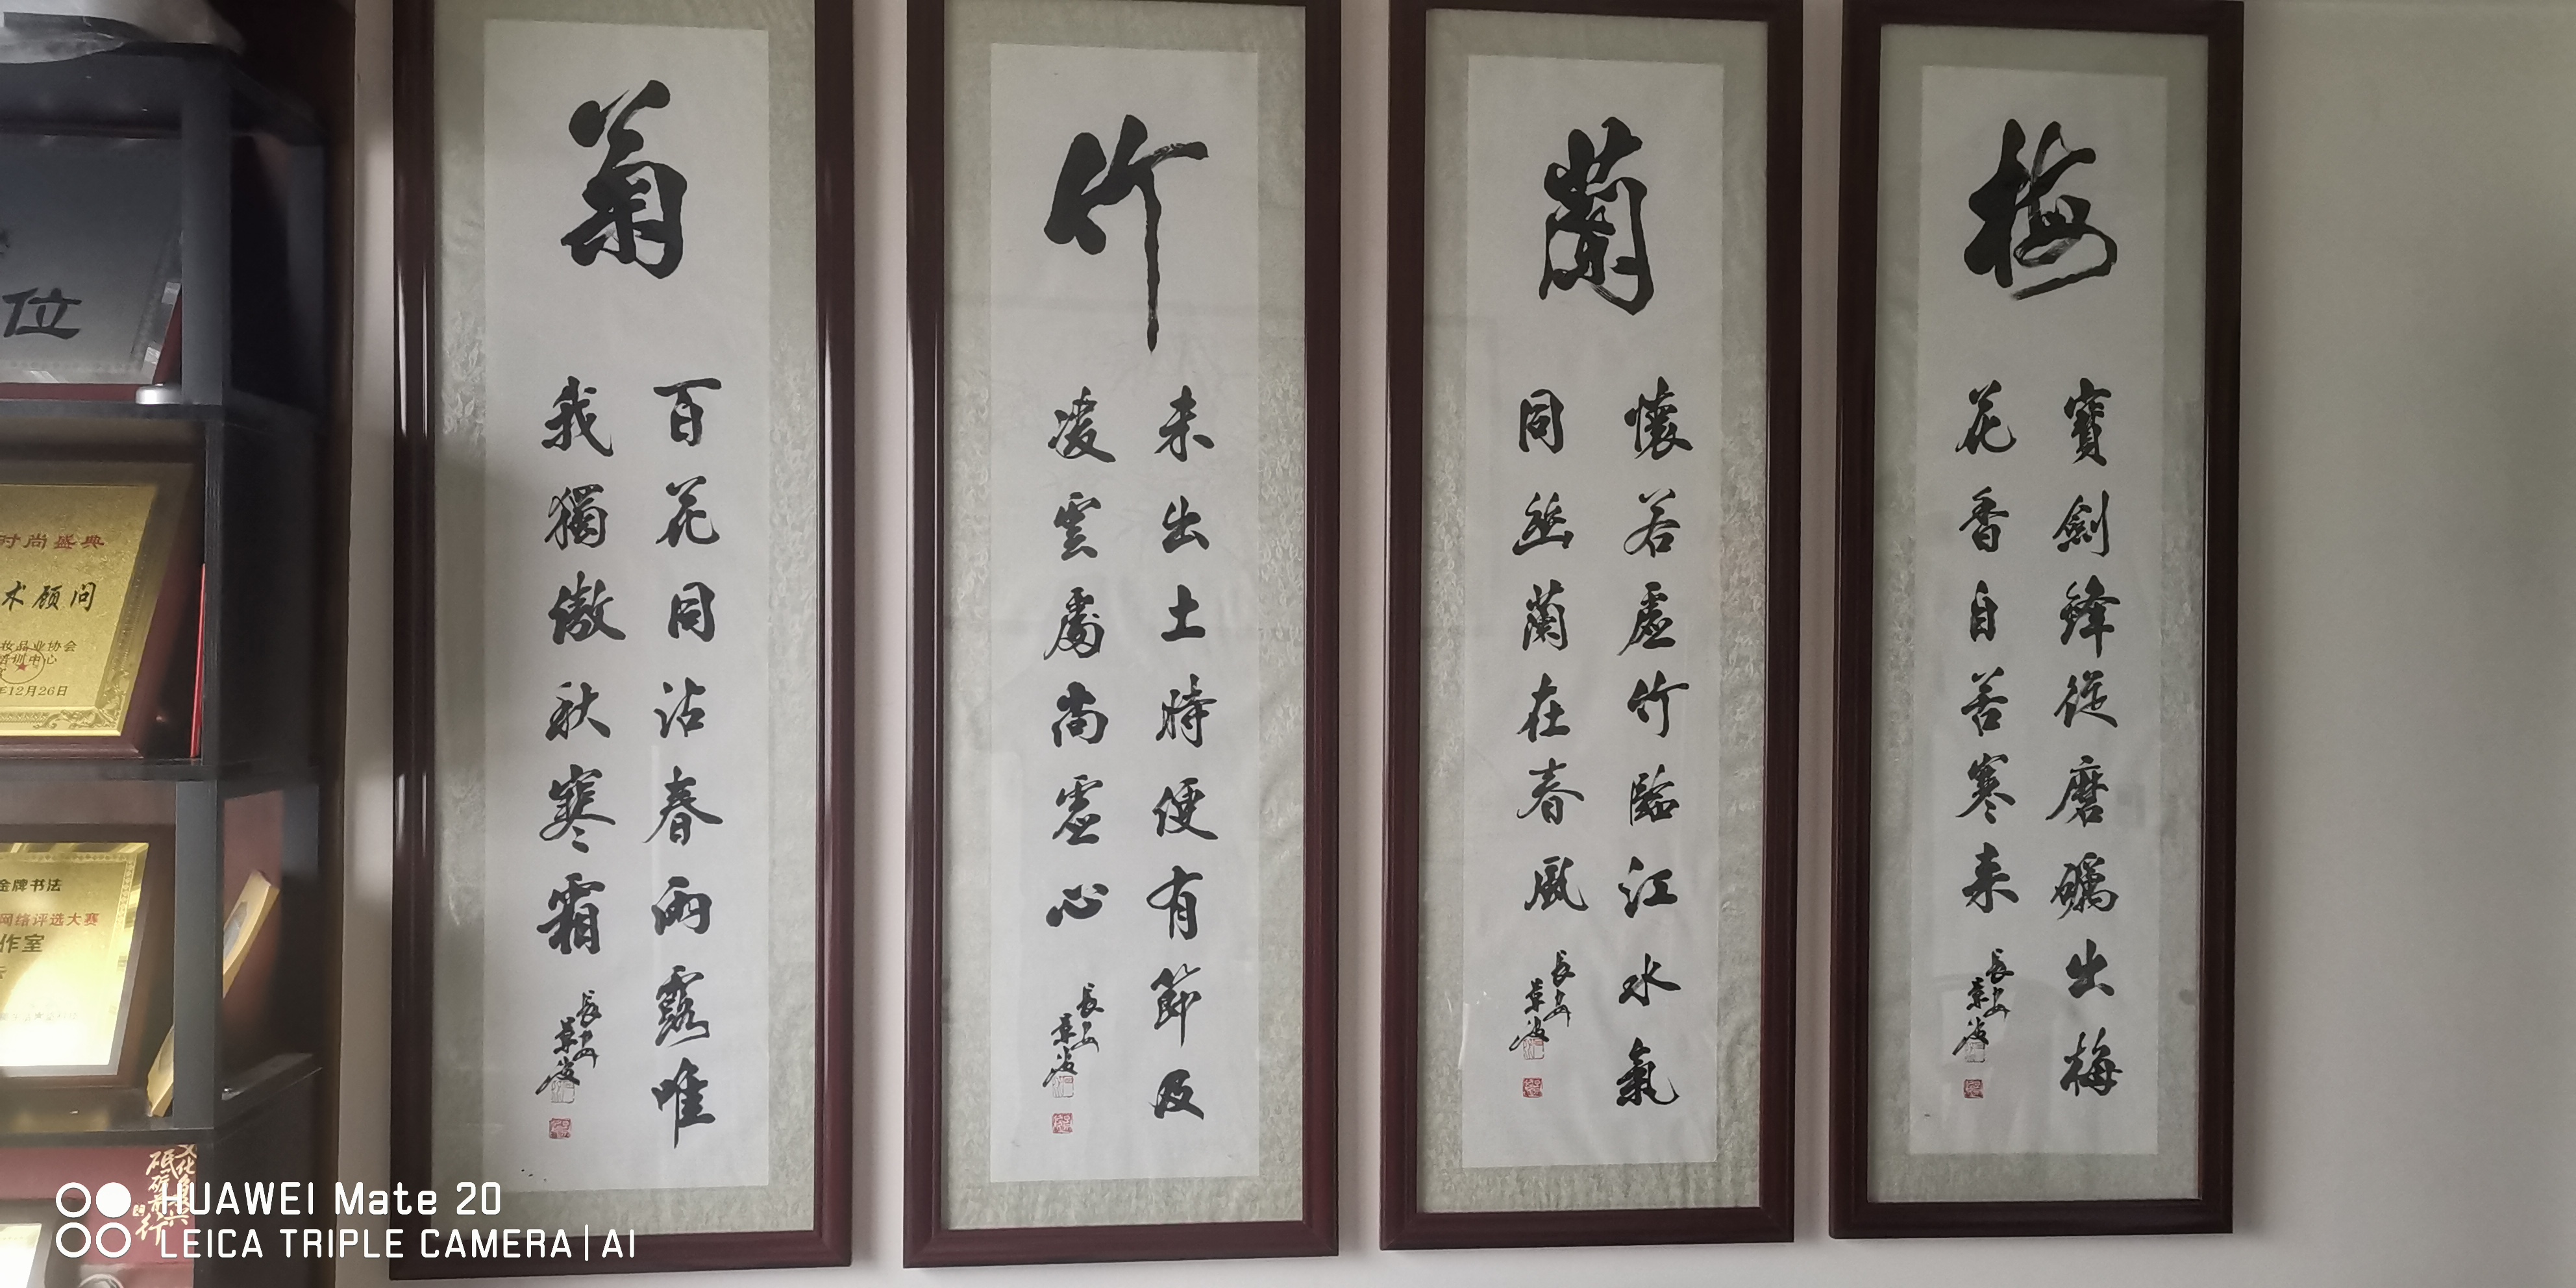 梅
寶劍鋒從磨礪出梅
花香自苦寒来
長安
蘭
懷若虛竹臨江水氣
同幽蘭在春風
長安
竹
未出土時便有節及
凌雲處尚虛心
長安
菊
百花同沾春雨露唯
我獨傲秋寒霜
長安
位
时尚盛典
术顾问
妆品业协会
培训中心
年12月26日
金牌书法
网络评选大赛
作室
HUAWEI Mate 20
LEICA TRIPLE CAMERA | AI